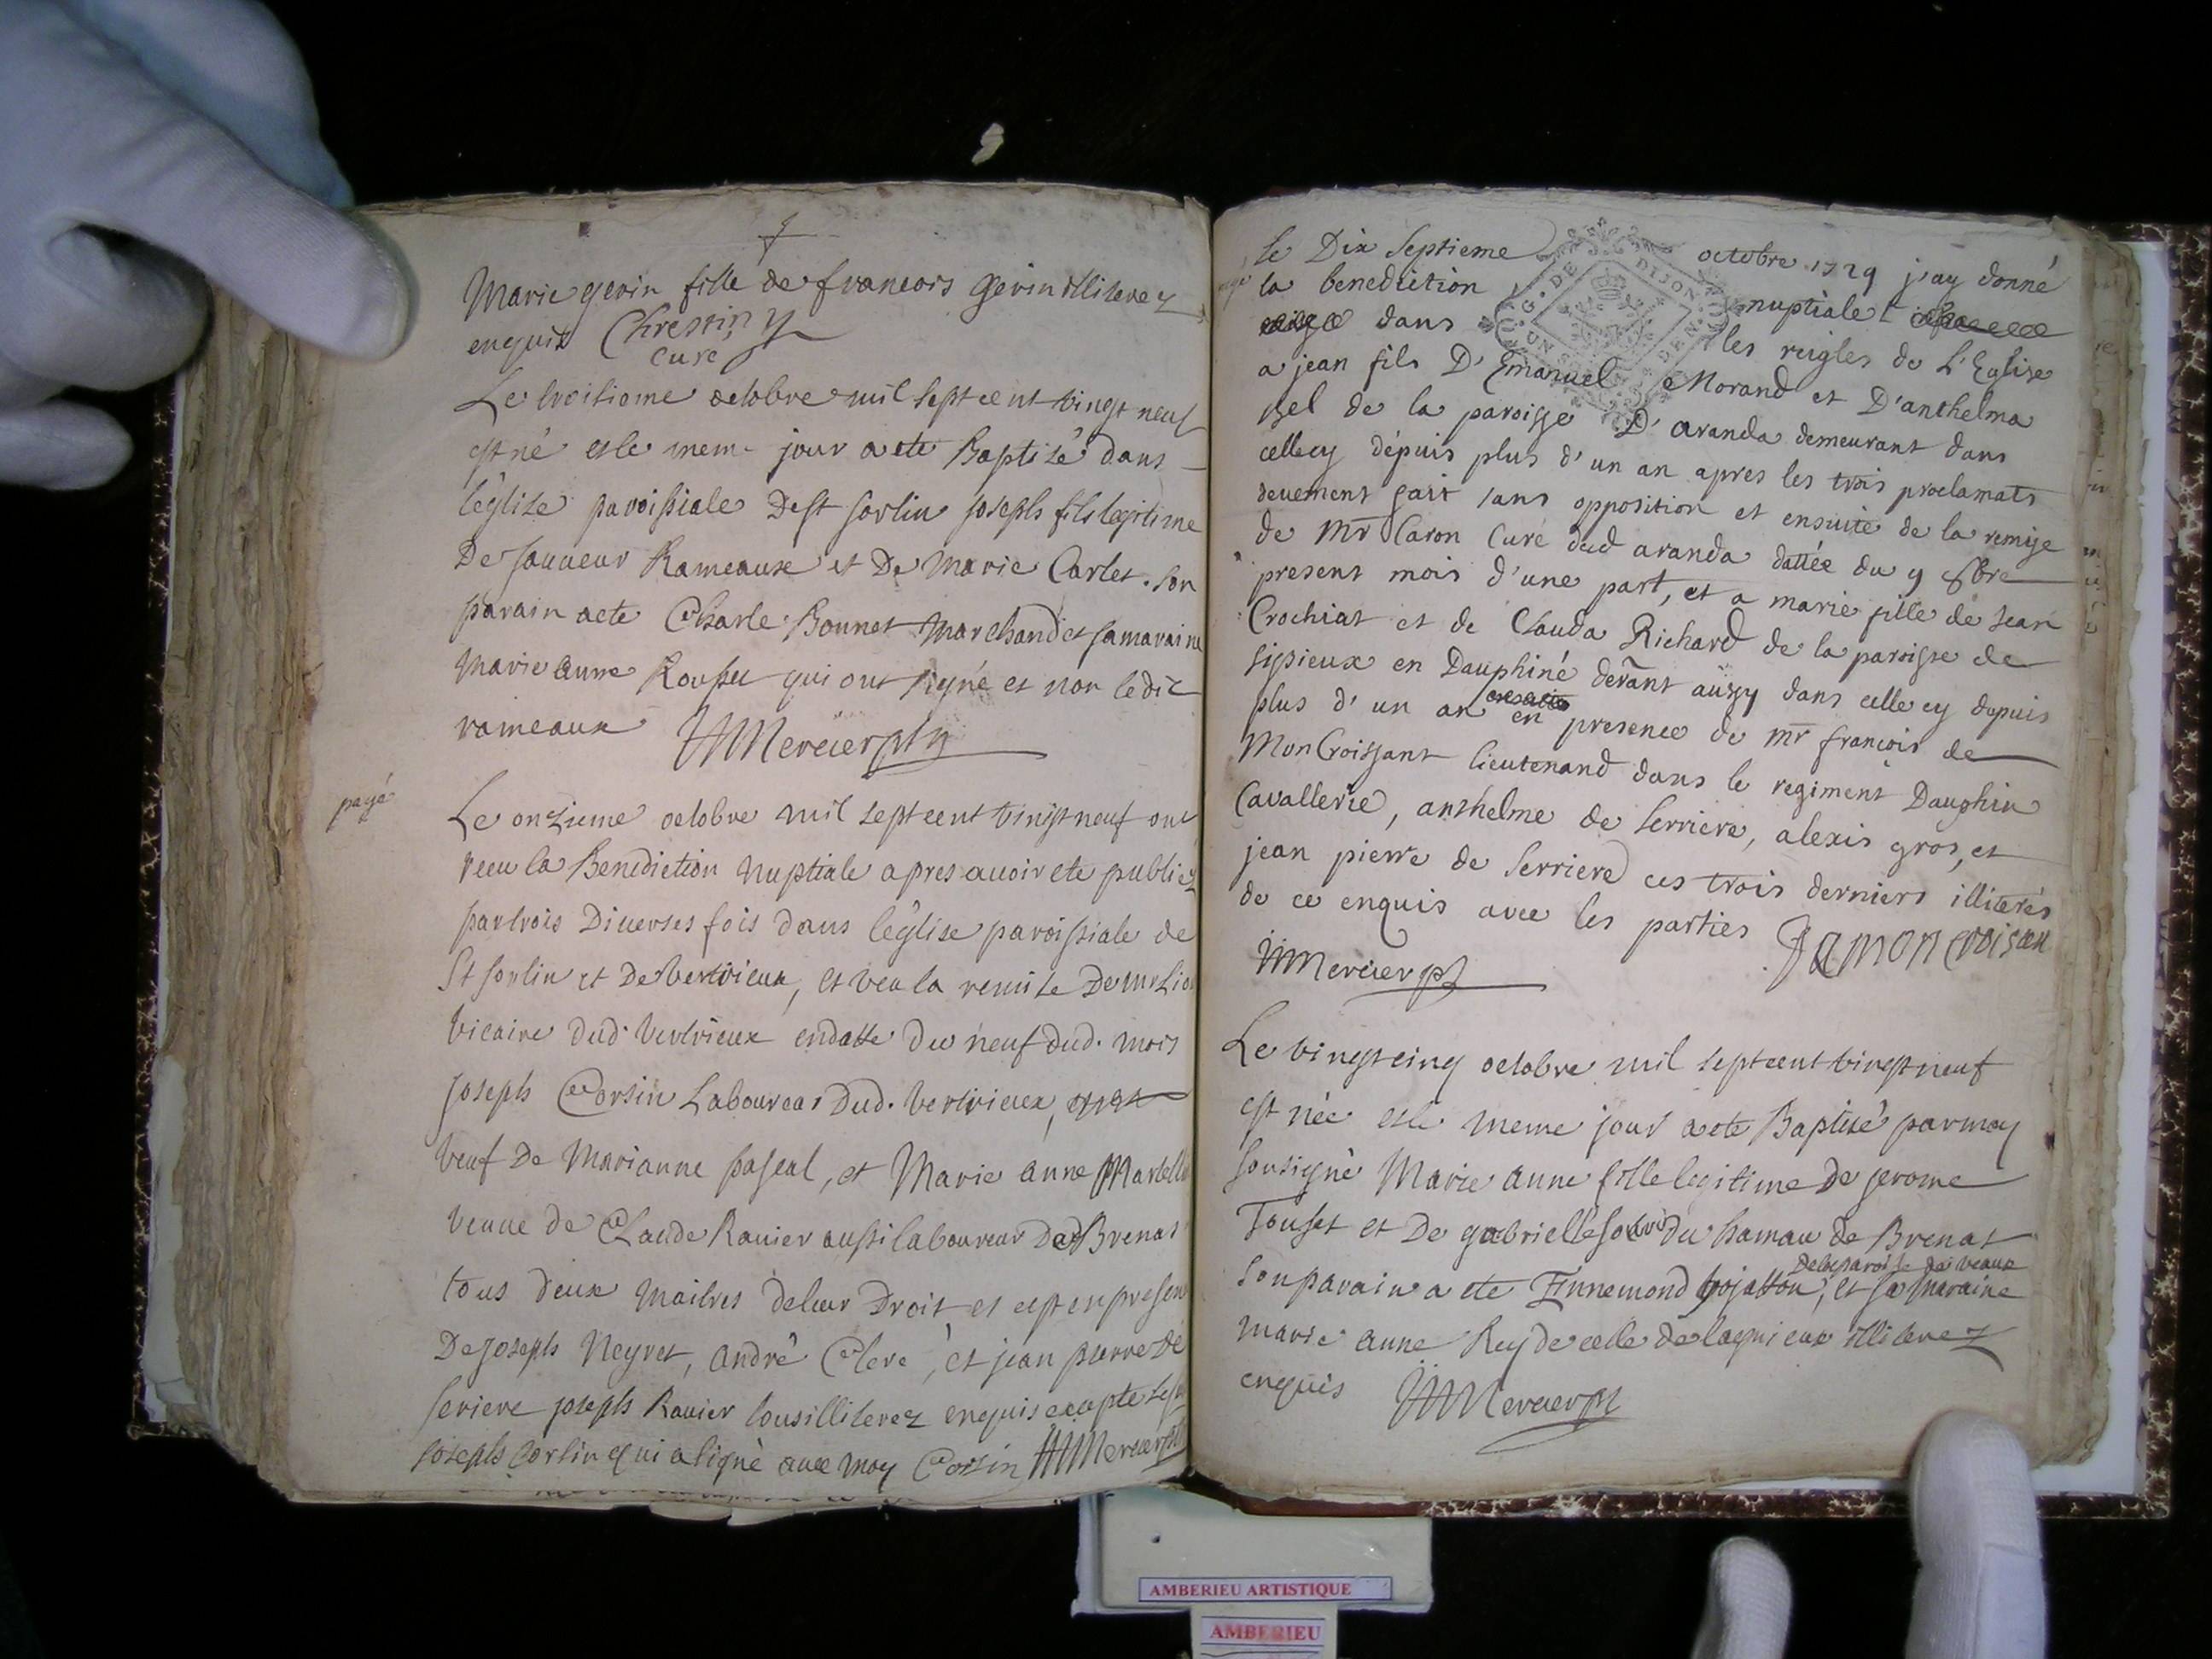 Marie gerin fille de francois gerin illiterez
enquis Chrestin
cure
Le troisieme octobre mil sept cent vingt neuf
est né et le mem jour a ete Baptisé dans
l'église paroissiale de st sorlin joseph fils legitime
De sauveur Rameaux et De Marie Carlet. son
parain a ete Charle Bonnet Marchand et sa maraine
Marie anne Rousset qui ont signé et non ledit
rameaux JMMercier ptr
payé
Le onzieme octobre mil sept cent vingt neuf ont
receu la Benediction Nuptiale apres avoir ete publiez
par trois Diverses fois dans l'église paroissiale de
St sorlin et De Vertrieux, et veu la remise De mr
vicaire dud. Vertrieux en datte du neuf dud. mois
joseph Corsin Laboureur Dud. Vertrieux,
veuf De Marianne pascal, et Marie anne
veuve de Claude Ravier aussi laboureur De Brenas
tous deux Maitres de leur Droit, et cest en presen
De joseph Neyret, André Clere, et jean pierre de
seriere joseph Ravier tous illiterez enquis excepte
joseph Corsin qui a signé avec moy Corsin JMMercier ptr
le Dix septieme octobre 1729 j'ay donné
la benediction nuptiale
dans les reigles de L'Eglise
a jean fils D'Emanuel Morand et D'anthelma
bel de la paroisse D'aranda demeurant dans
cellecy dépuis plus d'un an apres les trois proclamats
deuement fait sans opposition et ensuite de la remise
de Mr Caron Curé dud aranda dattée du 9 8bre
present mois d'une part, et a marie fille de jean
Crochiat et de Clauda Richard de la paroisse de
sissieux en Dauphiné demant aussy dans celle cy depuis
plus d'un an en presence de mr francois de
MonCroissant lieutenand dans le regiment Dauphin
Cavallerie, anthelme de Serriere, alexis gros, et
jean pierre de Serriere ces trois derniers illiterés
de ce enquis avec les parties
JMMercier ptr
Le vingt cinq octobre mil sept cent vingt neuf
est née et le meme jour a ete Baptisé par moy
sousigné Marie anne fille legitime De jerome
Touset et De gabrielle du hamau de Brenat
De la paroisse de vaux
son parain a ete Ennemond, et sa maraine
Marie anne Rey de celle de lagnieux illiterez
enquis JMMercier ptr
G. DE DIJON
AMBERIEU ARTISTIQUE
AMBERIEU